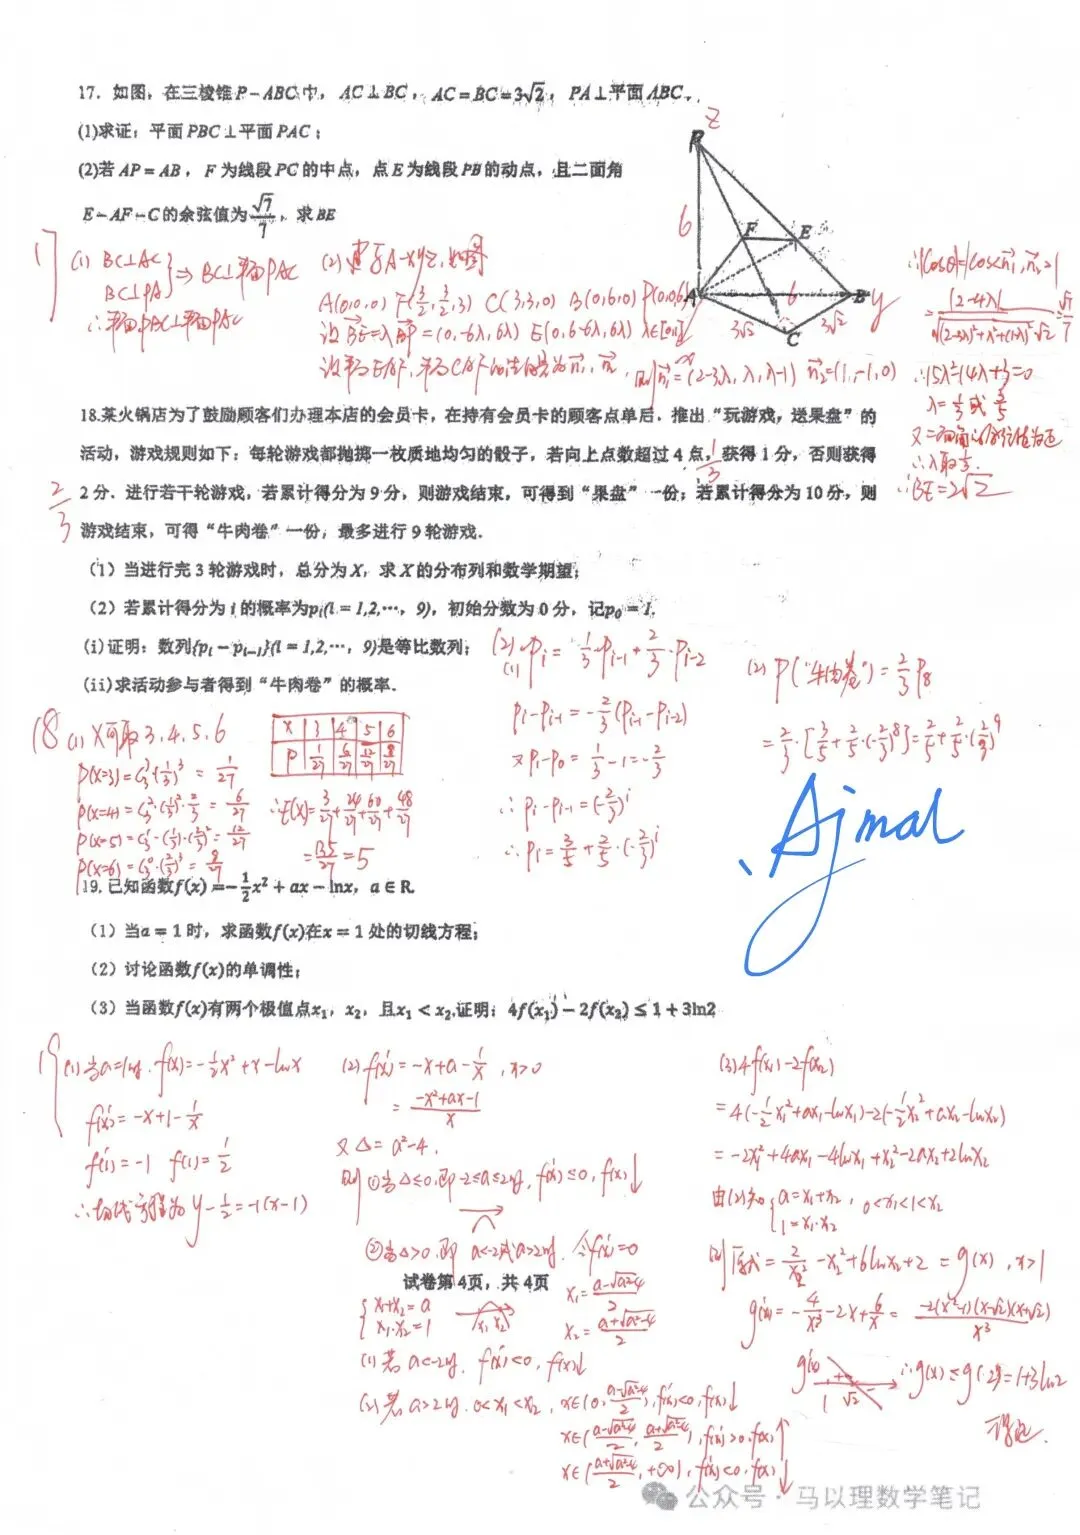 17. 如图，在三棱锥 P－ABC 中，AC⊥BC，AC＝BC＝3√2，PA⊥平面 ABC．
(1)求证：平面 PBC⊥平面 PAC；
(2)若 AP＝AB，F 为线段 PC 的中点，点 E 为线段 PB 的动点，且二面角
E－AF－C 的余弦值为 √7/7，求 BE
P
z
6
F
E
A
6
B
y
3√2
3√2
C
17
(1) BC⊥AC
BC⊥PA
⇒ BC⊥平面PAC
∴平面PBC⊥平面PAC
(2) 建系A-xyz, 如图
A(0,0,0) F(3/2,3/2,3) C(3,3,0) B(0,6,0) P(0,0,6)
设 BE=λBP=(0,-6λ,6λ) E(0,6-6λ,6λ) λ∈[0,1]
则 n₁=(2-3λ,λ,λ-1) n₂=(1,-1,0)
∴|cosθ|=|cos<n₁,n₂>|
=|2-4λ|/(√((2-3λ)²+λ²+(1-λ)²)·√2)=√7/7
∴15λ²-14λ+3=0
λ=1/3或3/5
∴λ取1/3.
∴BE=2√2
18.某火锅店为了鼓励顾客们办理本店的会员卡，在持有会员卡的顾客点单后．推出“玩游戏，送果盘”的
活动，游戏规则如下：每轮游戏都抛掷一枚质地均匀的骰子，若向上点数超过 4 点，获得 1 分，否则获得
1/3
2 分．进行若干轮游戏，若累计得分为 9 分，则游戏结束，可得到“果盘”一份；若累计得分为 10 分，则
2/3
游戏结束，可得“牛肉卷”一份，最多进行 9 轮游戏．
（1）当进行完 3 轮游戏时，总分为 X，求 X 的分布列和数学期望；
（2）若累计得分为 i 的概率为pᵢ(i = 1,2,⋯，9)，初始分数为 0 分，记p₀ = 1.
(i)证明：数列{pᵢ − pᵢ₋₁}(i = 1,2,⋯，9)是等比数列；
(ii)求活动参与者得到“牛肉卷”的概率．
18 (1) X可取 3, 4, 5, 6
P(X=3)=C₃³·(1/3)³ = 1/27
P(X=4)=C₃²·(1/3)²·2/3 = 6/27
P(X=5)=C₃¹·(1/3)·(2/3)² = 12/27
P(X=6)=C₃⁰·(2/3)³ = 8/27
X 3 4 5 6
P 1/27 6/27 12/27 8/27
∴E(X)=3/27+24/27+60/27+48/27
=135/27=5
(2)
(1) Pᵢ = 1/3·Pᵢ₋₁+2/3·Pᵢ₋₂
Pᵢ-Pᵢ₋₁=-2/3(Pᵢ₋₁-Pᵢ₋₂)
又P₁-P₀= 1/3-1=-2/3
∴Pᵢ-Pᵢ₋₁=(-2/3)ⁱ
∴Pᵢ=3/5+2/5·(-2/3)ⁱ
(2) P(“牛肉卷”)=2/3 P₈
=2/3·[3/5+2/5·(-2/3)⁸]=2/5+2/5·(2/3)⁹
Ajmal
19. 已知函数f(x) =−1/2x² + ax − lnx，a ∈ R.
（1）当a = 1 时，求函数f(x)在x = 1 处的切线方程；
（2）讨论函数f(x)的单调性；
（3）当函数f(x)有两个极值点x₁，x₂，且x₁ < x₂.证明：4f(x₁) − 2f(x₂) ≤ 1 + 3ln2
(1)当a=1时. f(x)=-1/2x²+x-lnx
f'(x)=-x+1-1/x
f'(1)=-1 f(1)=1/2
∴切线方程为 y-1/2=-1(x-1)
(2) f'(x)=-x+a-1/x, x>0
=(-x²+ax-1)/x
又Δ= a²-4.
则①当Δ≤0,即-2≤a≤2时, f'(x)≤0, f(x)↓
②当Δ>0,即 a<-2或a>2时. 令f'(x)=0
x₁=(a-√(a²-4))/2
x₂=(a+√(a²-4))/2
x₁+x₂=a
x₁·x₂=1
x₁ x₂
试卷第 4页，共 4页
(1)若 a<-2时, f'(x)<0, f(x)↓
(2)若a>2时. 0<x₁<x₂, x∈(0,(a-√(a²-4))/2), f'(x)<0, f(x)↓
x∈((a-√(a²-4))/2,(a+√(a²-4))/2), f'(x)>0, f(x)↑
x∈((a+√(a²-4))/2,+∞), f'(x)<0, f(x)↓
(3) 4f(x₁)-2f(x₂)
=4(-1/2x₁²+ax₁-lnx₁)-2(-1/2x₂²+ax₂-lnx₂)
=-2x₁²+4ax₁-4lnx₁+x₂²-2ax₂+2lnx₂
由(2)知 a=x₁+x₂, 1=x₁·x₂ 0<x₁<1<x₂
则原式=2/x₂²-x₂²+6lnx₂+2=g(x), x>1
g'(x)=-4/x³-2x+6/x=-2(x²-1)(x-√2)(x+√2)/x³
g'(x)
1 √2
∴g(x)≤g(√2)=1+3ln2
得证.
公众号 · 马以理数学笔记